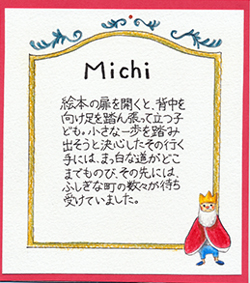 Michi
絵本の扉を開くと、背中を
向け足を踏ん張って立つ子
ども。小さな一歩を踏み
出そうと決心したその行く
手には、まっ白な道がどこ
までものび、その先には、
ふしぎな町の数々が待ち
受けていました。